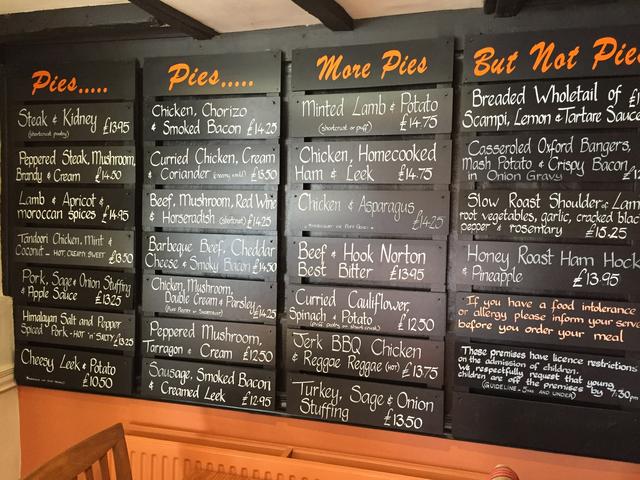 Pies.....
Steak & Kidney £13.95
(shortcrust pastry)
Peppered Steak, Mushroom,
Brandy & Cream £14.50
Lamb & Apricot &
moroccan spices £14.95
Tandoori Chicken, Mint &
Coconut - HOT, CREAMY, SWEET £13.50
Pork, Sage & Onion Stuffing
& Apple Sauce £13.25
Himalayan Salt and Pepper
Spiced Pork - HOT 'n' SWEET £13.25
Cheesy Leek & Potato
£10.50
Pies.....
Chicken, Chorizo
& Smoked Bacon £14.25
Curried Chicken, Cream
& Coriander (creamy & mild) £13.50
Beef, Mushroom, Red Wine
& Horseradish (shortcrust) £14.25
Barbeque Beef, Cheddar
Cheese & Smoky Bacon £14.50
Chicken, Mushroom,
Double Cream & Parsley £14.25
Peppered Mushroom,
Tarragon & Cream £12.50
Sausage, Smoked Bacon
& Creamed Leek £12.95
More Pies
Minted Lamb & Potato
(shortcrust or puff) £14.75
Chicken, Homecooked
Ham & Leek £14.75
Chicken & Asparagus
£14.25
Beef & Hook Norton
Best Bitter £13.95
Curried Cauliflower,
Spinach & Potato £12.50
Jerk BBQ Chicken
& Reggae Reggae (HOT) £13.75
Turkey, Sage & Onion
Stuffing £13.50
But Not Pies
Breaded Wholetail of £1
Scampi, Lemon & Tartare Sauce
Casseroled Oxford Bangers,
Mash Potato & Crispy Bacon
in Onion Gravy £12
Slow Roast Shoulder of Lam
root vegetables, garlic, cracked blac
pepper & rosemary £15.25
Honey Roast Ham Hock
& Pineapple £13.95
If you have a food intolerance
or allergy please inform your serve
before you order your meal
These premises have licence restrictions
on the admission of children.
We respectfully request that young
children are off the premises by 7:30pm
(GUIDELINE - 5YRS AND UNDER)